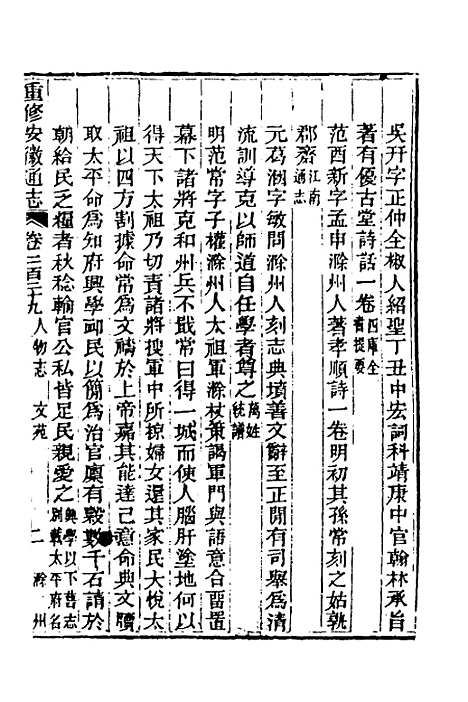 吳幵字正仲全椒人紹聖丁丑中宏詞科靖康中官翰林承旨
著有優古堂詩話一卷四庫全書提要
范酉新字孟申滁州人著孝順詩一卷明初其孫常刻之姑孰
郡齋江南通志
元萬淵字敏問滁州人刻志典墳善文辭至正閒有司舉爲清
流訓導克以師道自任學者尊之萬姓統譜
明范常字子權滁州人太祖軍滁杖策謁軍門與語意合畱置
幕下諸將克和州兵不戢常曰得一城而使人腦肝塗地何以
得天下太祖乃切責諸將搜軍中所掠婦女還其家民大悅太
祖以四方割據命常爲文禱於上帝嘉其能達己意命典文牘
取太平命爲知府興學卹民以簡爲治官廩有穀數千石請於
朝給民乏種者秋稔輸官公私皆足民親愛之興學以下舊志別載太平府名
重修安徽通志 卷二百二十九 人物志 文苑 二 滁州